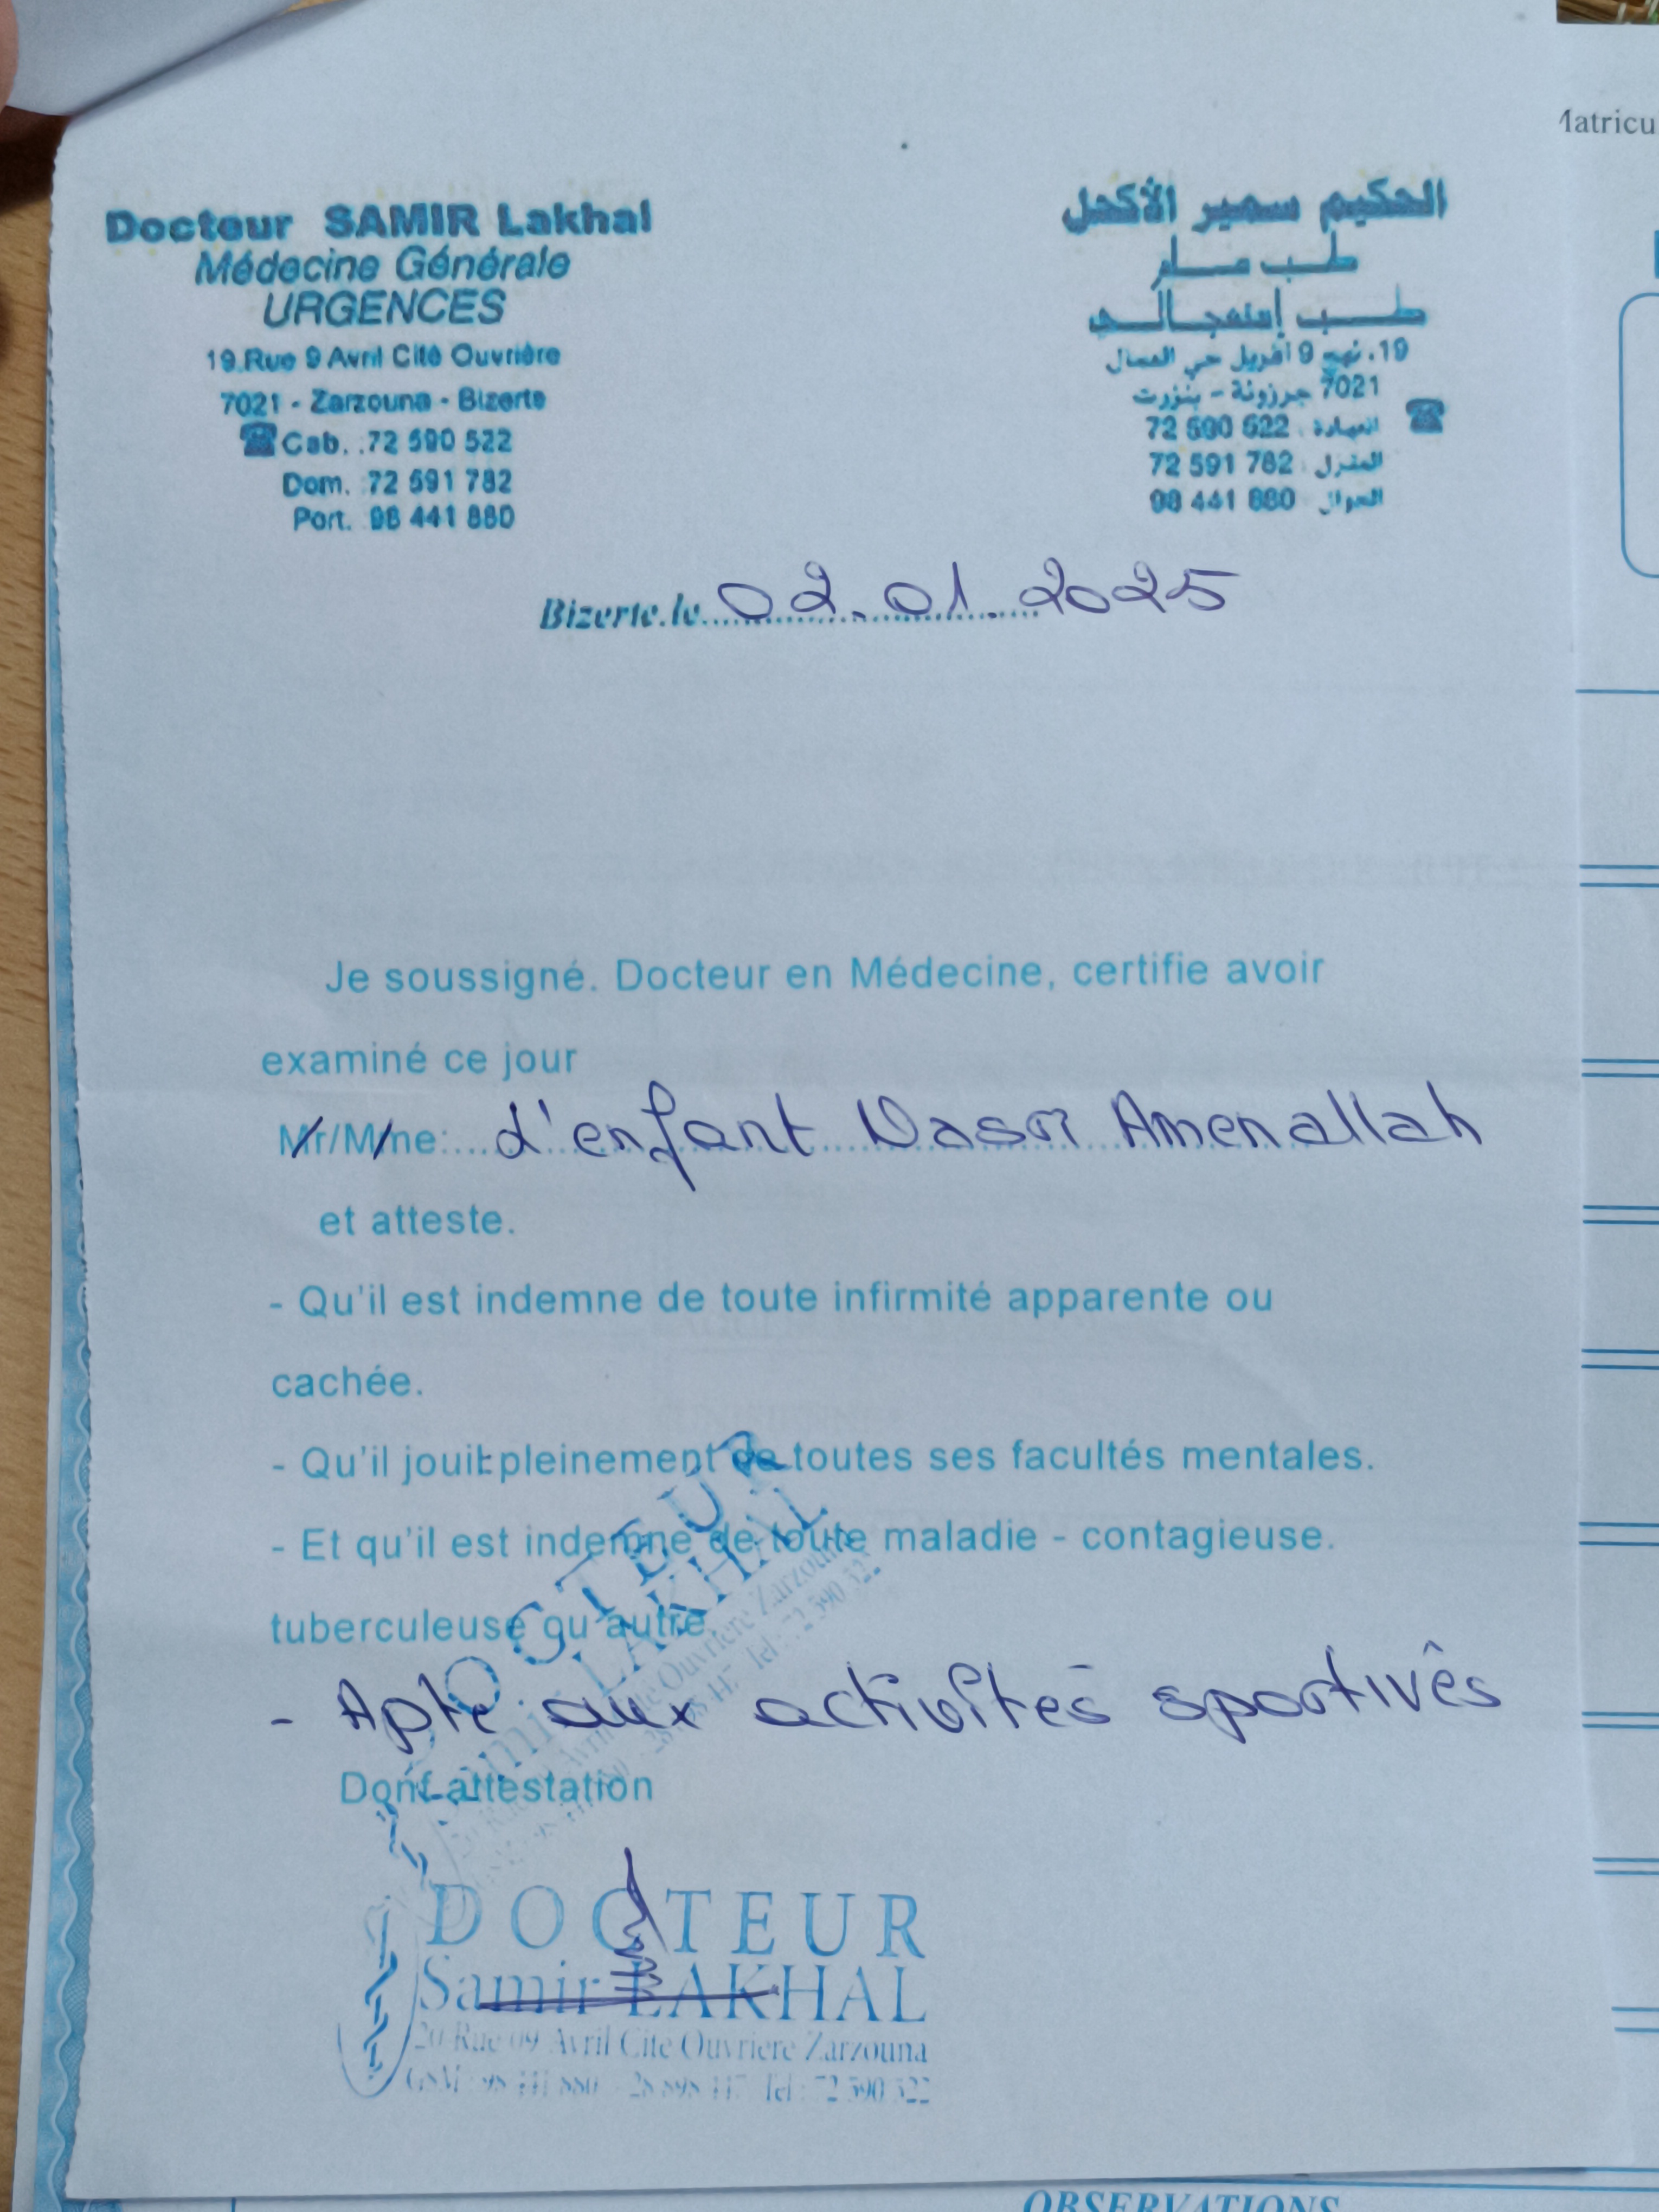 latricu
Docteur SAMIR Lakhal
Médecine Générale
URGENCES
19.Rue 9 Avril Cité Ouvrière
7021 - Zarzouna - Bizerte
Cab. .72 590 522
Dom. 72 591 782
Port. 98 441 880
الحكيم سمير الأكحل
طب عام
طب إستعجالي
19، نهج 9 أفريل حي العمال
7021 جرزونة - بنزرت
العيادة 72 590 522
المنزل 72 591 782
الجوال 98 441 880
Bizerte.le 02.01.2025
Je soussigné. Docteur en Médecine, certifie avoir
examiné ce jour
Mr/Mme: d'enfant Amenallah
et atteste.
- Qu'il est indemne de toute infirmité apparente ou
cachée.
- Qu'il jouit pleinement de toutes ses facultés mentales.
- Et qu'il est indemne de toute maladie - contagieuse.
tuberculeuse ou autre.
- Apte aux activités sportives
Dont attestation
DOCTEUR
LAKHAL
Ouvriere Zarzouna
Tel : 72 590 522
DOCTEUR
Samir LAKHAL
20 Rue 09 Avril Cite Ouvriere Zarzouna
GSM : 98 441 880 - Tel : 72 590 522
OBSERVATIONS